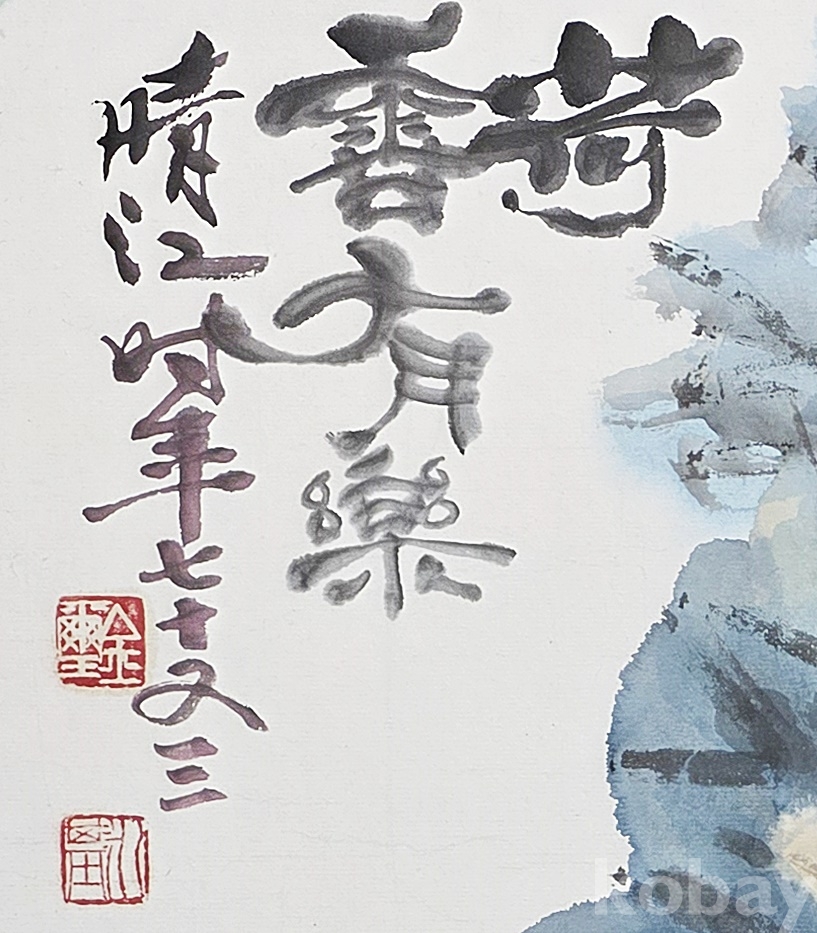 荷
香有樂
晴江时年七十又三
kobay